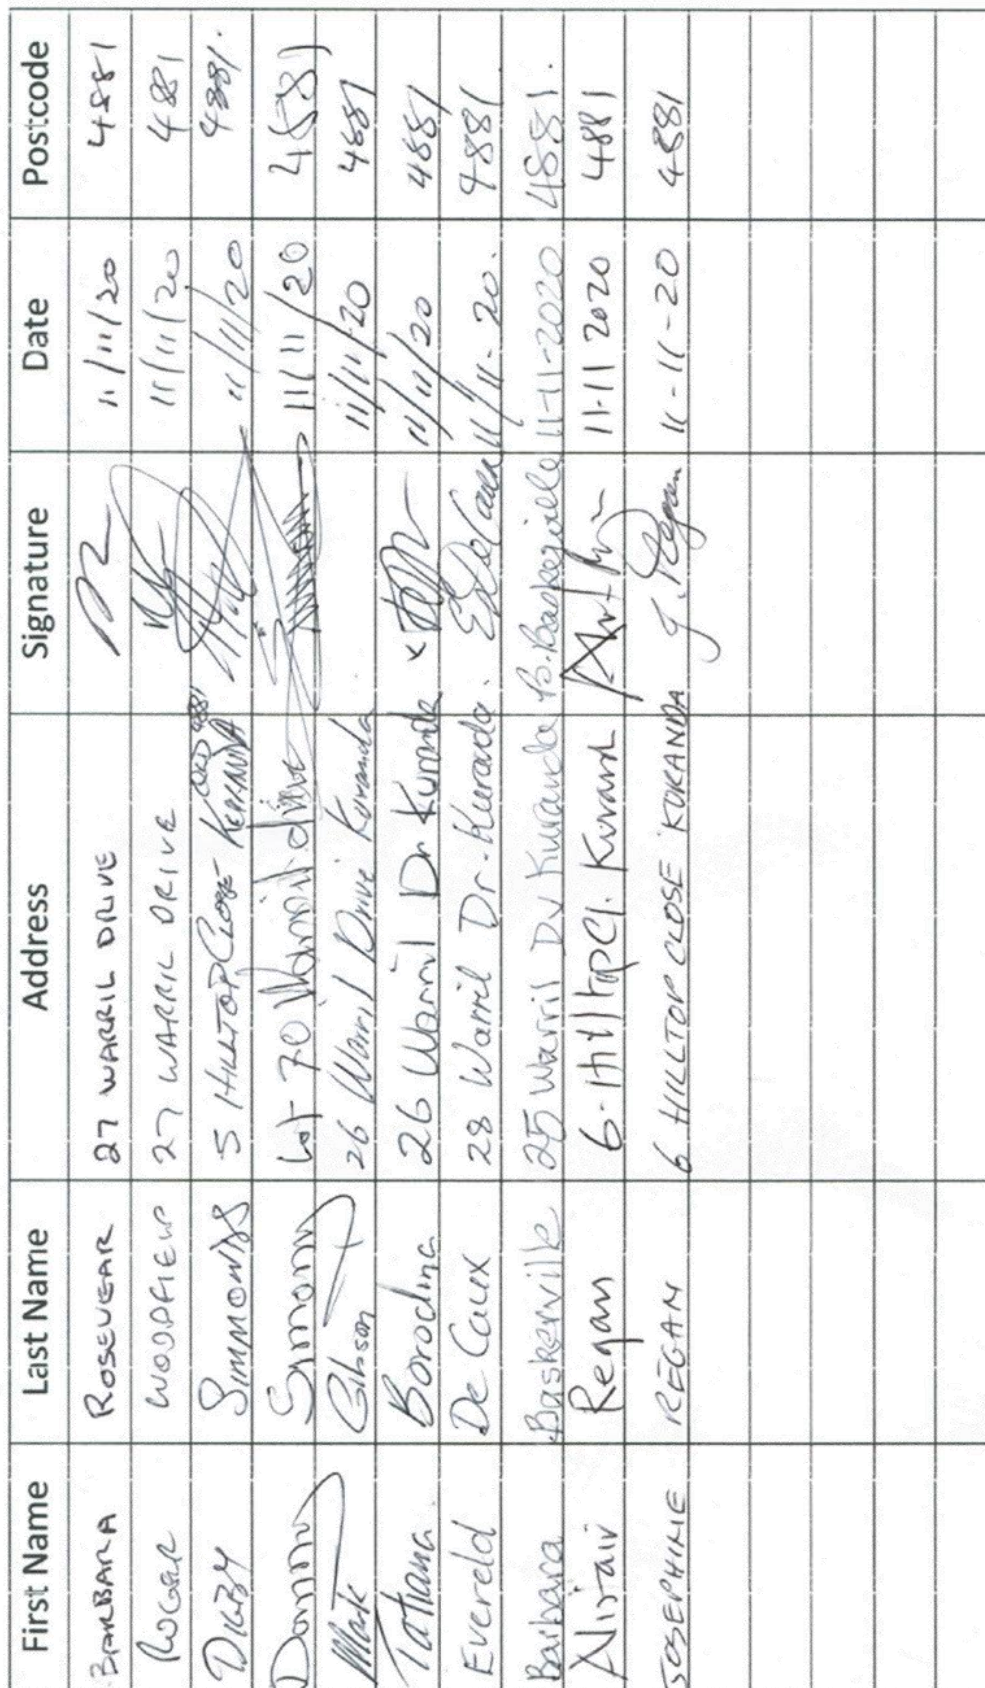 First Name Last Name Address Signature Date Postcode
BARBARA ROSEVEAR 27 WARRIL DRIVE 11/11/20 4881
ROGER WOODFIELD 27 WARRIL DRIVE 11/11/20 4881
DIGBY SIMMONDS 5 HILLTOP CLOSE KURANDA QLD 4881 11/11/20 4881.
Danny Symons Lot 70 Warril drive 11/11/20 4881
Mark Gibson 26 Warril Drive Kuranda 11/11/20 4881
Tatiana Borodina 26 Warril Dr Kuranda x 11/11/20 4881
Evereld De Caux 28 Warril Dr. Kurada. E De Caux 11/11-20. 4881
Barbara Baskerville 25 Warril Dr Kuranda B. Baskerville 11-11-2020 4881.
Alistair Regan 6-Hilltop Cl. Kurand 11-11 2020 4881
JOSEPHINE REGAN 6 HILLTOP CLOSE KURANDA J. Regan 11-11-20 4881